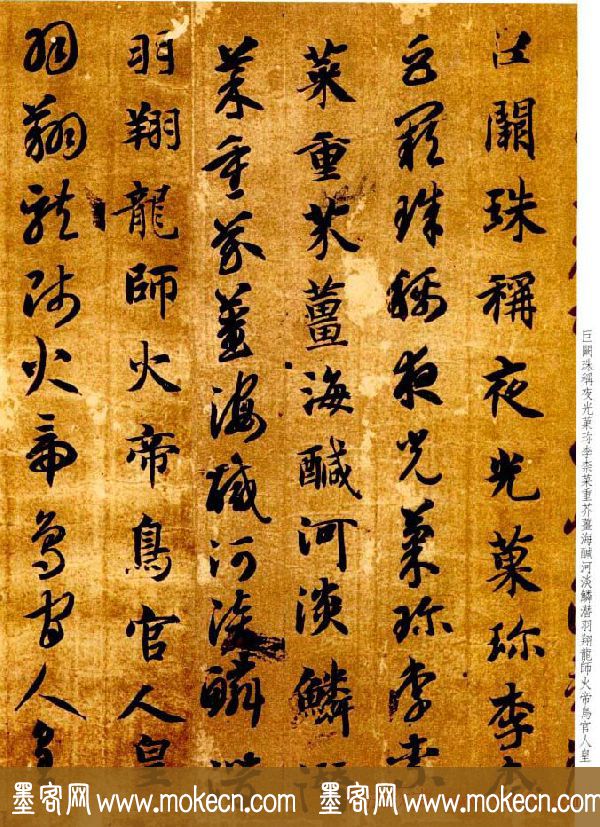 巨闕珠稱夜光菓珎李柰菜重芥薑海醎河淡鱗潛羽翔龍師火帝鳥官人皇
巨闕珠稱夜光菓珎李柰
巨闕珠稱夜光菓珎李柰
菜重芥薑海醎河淡鱗潛
菜重芥薑海醎河淡鱗潛
羽翔龍師火帝鳥官人皇
羽翔龍師火帝鳥官人皇
墨客网 www.mokecn.com 墨客网 www.mokecn.com